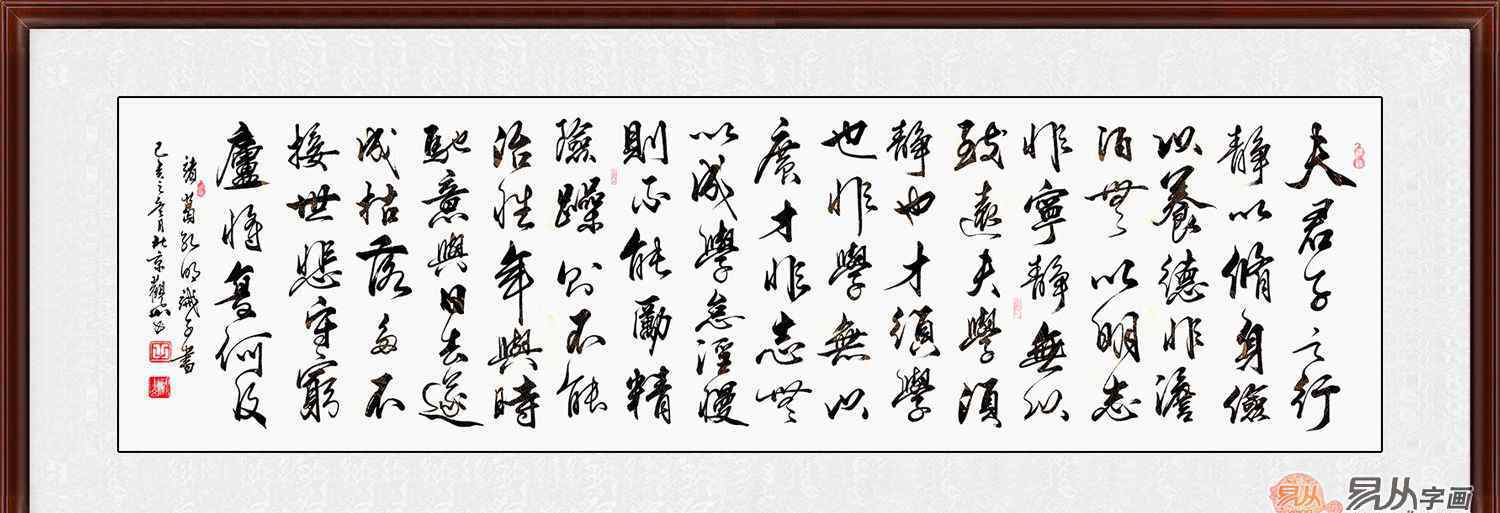 夫君子之行
静以脩身儉
以養德非澹
泊無以明志
非寧静無以
致遠夫學須
静也才須學
也非學無以
廣才非志無
以成學怠淫慢
則不能勵精
險躁則不能
治性年與時
馳意與日去遂
成枯落多不
接世悲守窮
廬將复何及
諸葛孔明誡子書
己亥之冬月北京觀山书
易从字画